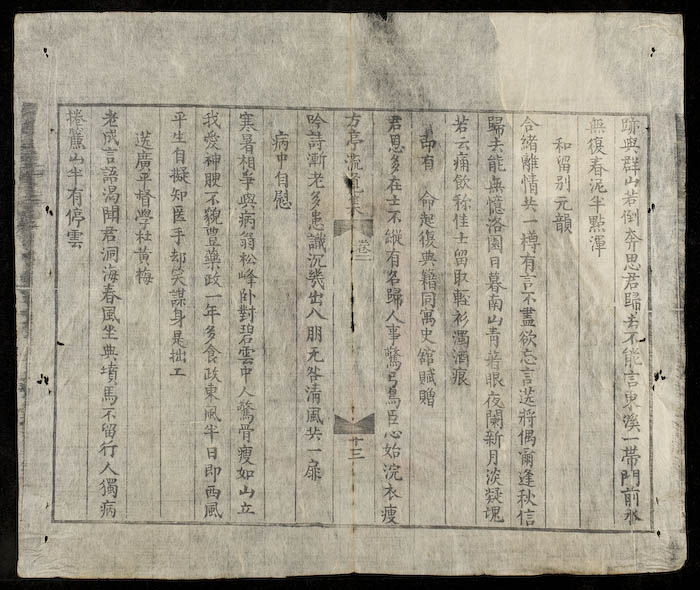 跡與群山若倒奔思君歸去不能言東溪一帶門前水
無復春泥半點渾
和留別元韻
合緒離情共一樽有言不盡欲忘言送將偶爾逢秋信
歸去能無憶洛園日暮南山青著眼夜闌新月淡凝魂
若云痛飲称佳士留取輕衫濁酒痕
即有 命起復典籍同寓史館賦贈
君恩多在士不縱有名歸人事驚弓鳥臣心始浣衣瘦
方亭流
卷二
十三
吟詩漸老多患識沉幾出八朋无咎清風共一扉
病中自慰
寒暑相爭與病翁松峰卧對碧雲中人驚骨瘦如山立
我愛神腴不貌豊藥政一年多食政東風半日即西風
平生自擬知医手却笑謀身是拙工
送廣平督學杜黃梅
老成言語渴聞君洞海春風坐典墳馬不留行人獨病
捲簾山半有停雲